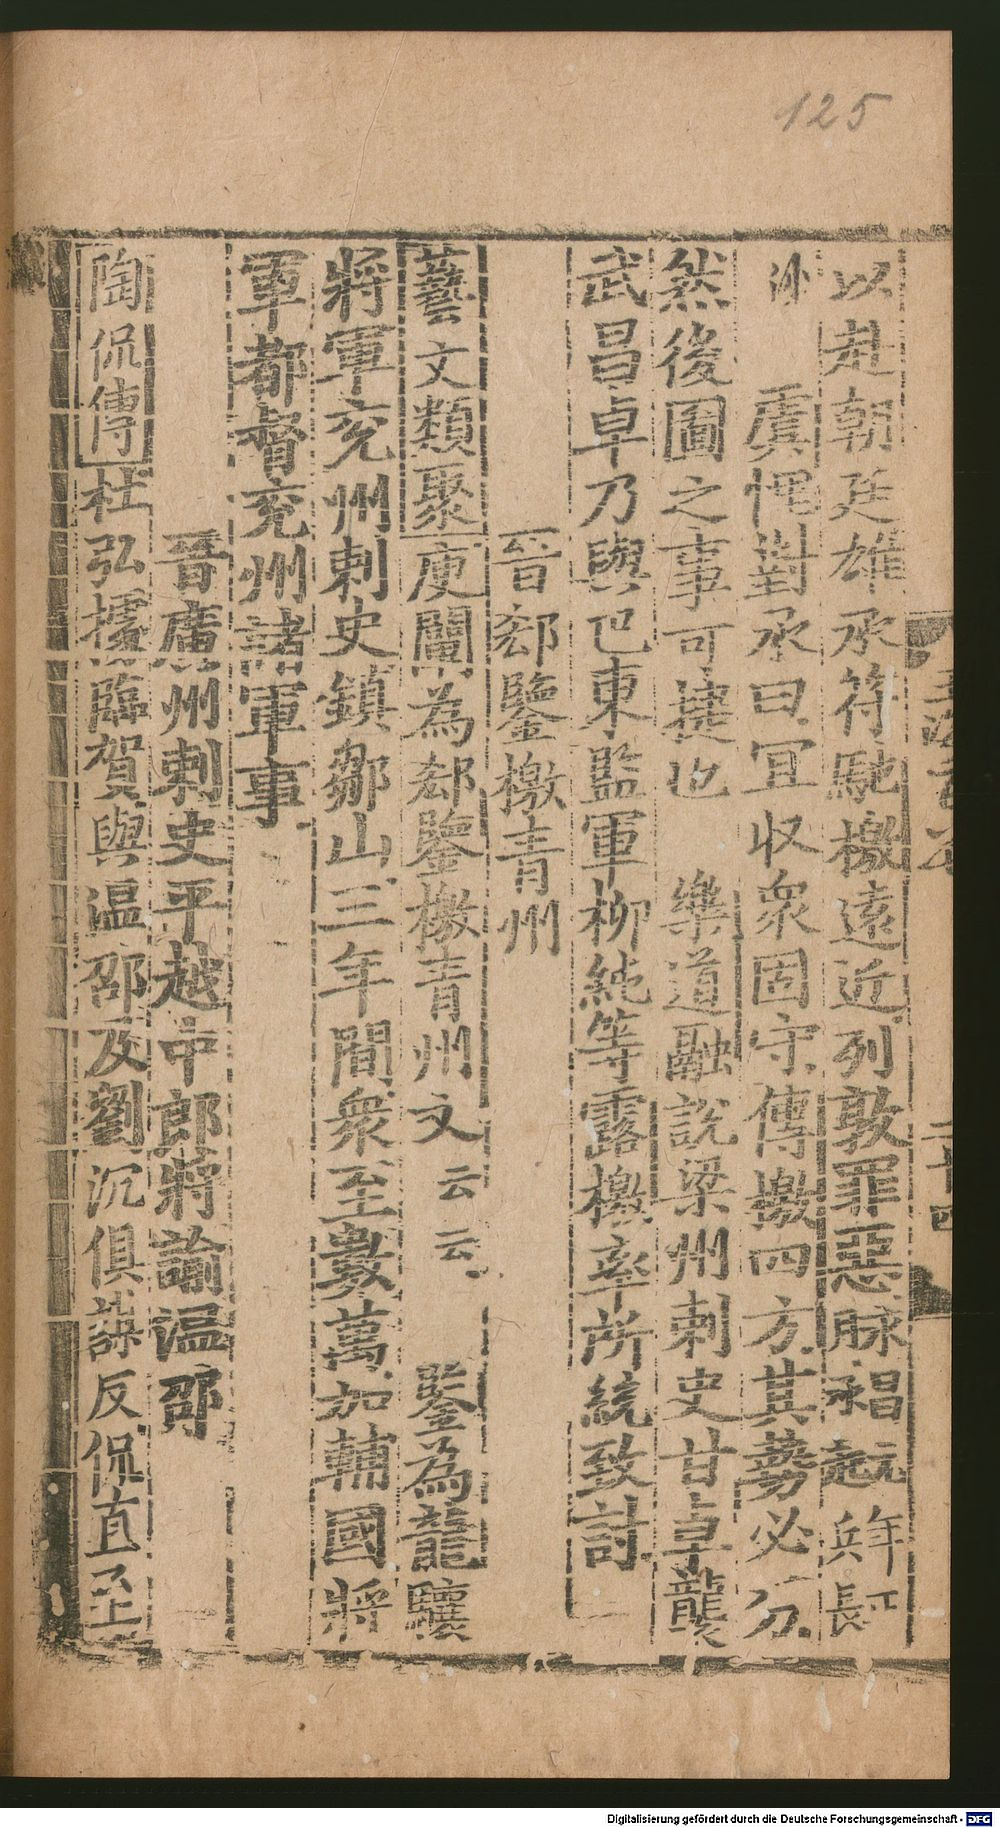 125
以赴朝廷雄承符馳檄遠近列敦罪惡脉永昌元年承起兵江長
沙　虞悝對承曰宜收衆固守傳檄四方其勢必分
然後圖之事可捷也　樂道融説梁州刺史甘卓襲
武昌卓乃與巴東監軍柳純等露檄率所統致討
晉郄鑒檄青州
藝文類聚庾闡為郄鑒檄青州文云云　鑒為龍驤
將軍兖州刺史鎮鄒山三年間衆至數萬加輔國將
軍都督兖州諸軍事
晉廣州刺史平越中郎將諭温邵
陶侃傳杜弘據臨賀與温邵及劉沉俱謀反侃直至
二十四
Digitalisierung gefördert durch die Deutsche Forschungsgemeinschaft - DFG